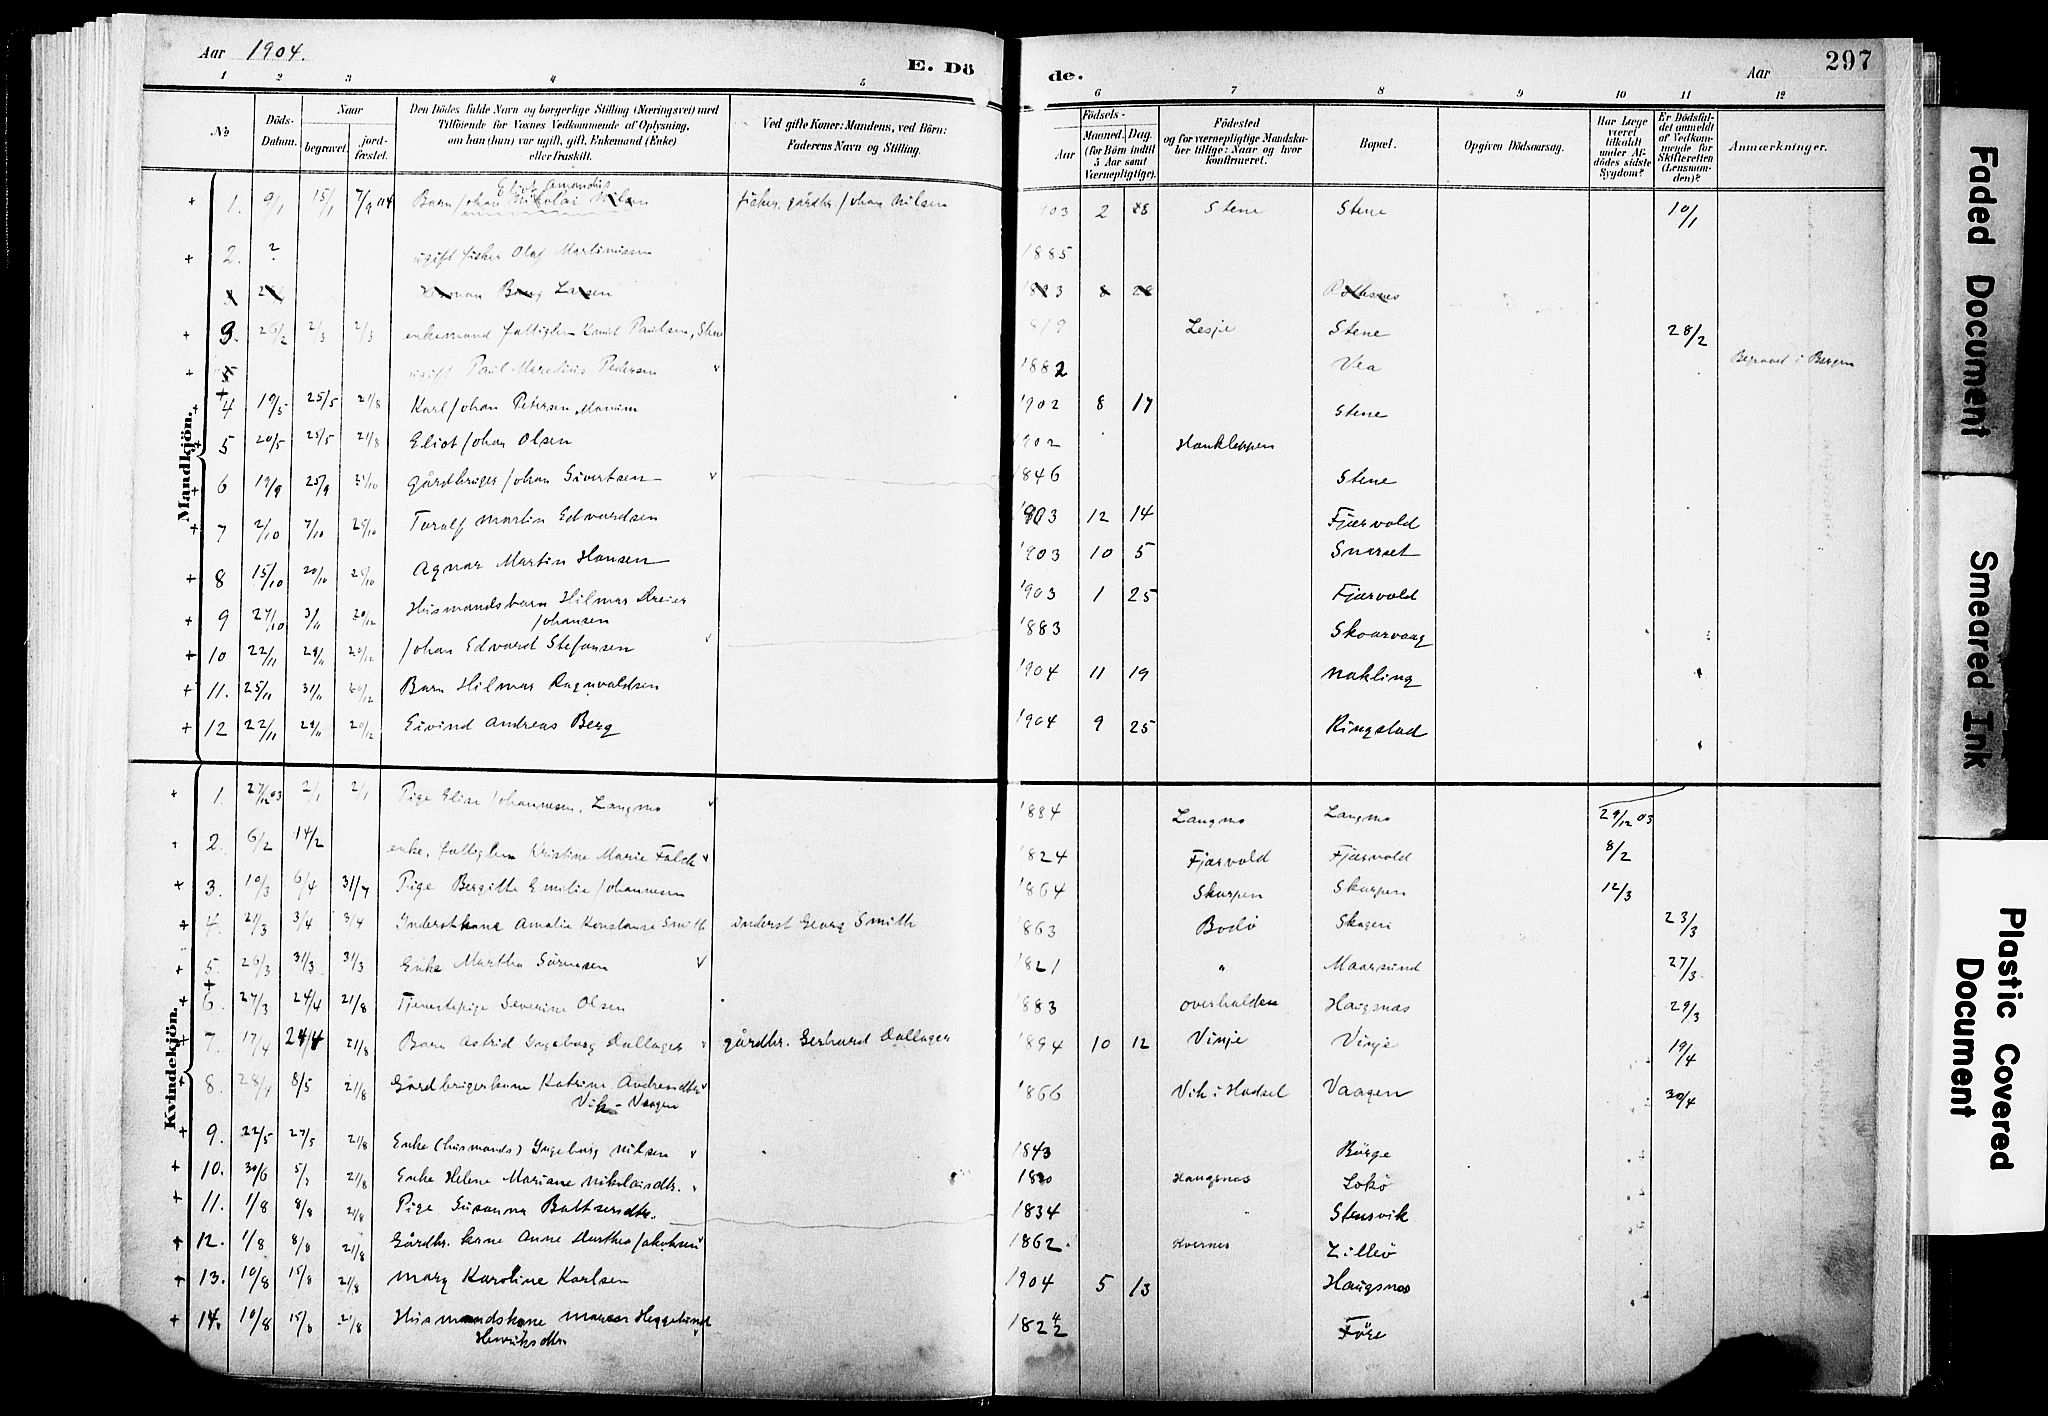 Aar 1904.
E. Dö
de.
Aar
297
1 2 3 4 5
6 7 8 9 10 11 12
No
Döds-Datum.
Naar
begravet.
jord-fæstet.
Den Dödes fulde Navn og borgerlige Stilling (Næringsvei) med
Tilföiende for Voxnes Vedkommende af Oplysning,
om han (hun) var ugift, gift, Enkemand (Enke)
eller fraskilt.
Ved gifte Koner: Mandens, ved Börn:
Faderens Navn og Stilling.
Födsels-
Aar
Maaned. Dag.
(for Börn indtil
5 Aar samt
Værnepligtige).
Födested
og for værnepligtige Mandska-
ber tillige: Naar og hvor
Konfirmeret.
Bopæl.
Opgiven Dödsaarsag.
Har Læge
været
tilkaldt
under Af-
dödes sidste
Sygdom?
Er Dödsfal-
det anmeldt
af Vedkom-
mende for
Skifteretten
(Lensman-
den)?
Anmærkninger.
Mandkjön.
1. 9/1 15/1 7/9 04 Barn Johan Nikolai Nilsen fisker, gårdbr. Johan Nilsen 903 2 28 Stene Stene 10/1
2. ? ugift fisker Olaf Martinussen 1885
Herman Berg Larsen
3. 26/2 2/3 2/3 enkemand fattiglem Knut Paulsen, Stene 819 Lesje Stene 28/2
ugift Paul Marelius Pedersen 1882 Vea Begravet i Bergen
4 19/5 25/5 21/8 Karl Johan Petersen 1902 8 17 Stene
5 20/5 25/5 21/8 Eliot Johan Olsen 1902 Haukleppen
6 19/9 25/9 Gårdbruger Johan Sivertsen 1846 Stene
7 2/10 7/10 Toralf Martin Edvardsen 1903 12 14 Fjærvold
8 15/10 20/10 Agnar Martin Hansen 1903 10 5 Snarset
9 27/10 3/11 20/12 Husmandsbarn Hilmar Dreier
Johansen 1903 1 25 Fjærvold
10 22/11 29/11 20/12 Johan Edvard Stefansen 1883 Skaarvaag
11. 25/11 31/11 20/12 Barn Hilmar Ragnvaldsen 1904 11 19 Nøkling
12 22/11 29/11 20/12 Eivind Andreas Berg 1904 9 25 Ringstad
Kvindekjön.
1. 27/12 03 2/1 2/1 Pige Elise Johannesen, Langmo 1884 Langmo Langmo 29/12 03
2. 6/2 14/2 enke, fattiglem Kristine Marie Falch 1824 Fjærvold Fjærvold 8/2
3. 10/3 6/4 31/7 Pige Bergitte Emilie Johannesen 1864 Skarpen Skarpen 12/3
4. 21/3 3/4 3/4 Inderstkone Amalie Konstanse Smith inderst Georg Smith 1863 Bodö 23/3
5. 26/3 31/3 31/3 Enke Martha Sörensen 1821 " Maarsund 27/3
6. 27/3 24/4 21/8 Tjenestepige Severine Olsen 1883 Overhalden Haugsnas 29/3
7. 17/4 24/4 21/8 Barn Astrid Ingeborg Dallager gårdbr. Gerhard Dallager 1894 10 12 Vinje Vinje 19/4
8. 28/4 8/5 21/8 Gårdbrigerkone Katrine Andreasdtr
Vik - Vaagen 1866 Vik i Hadsel Vaagen 30/4
9. 22/5 27/5 21/8 Enke (husmands) Ingeborg Nilsen 1843 Börge
10. 30/6 21/8 Enke Helene Mariane Nikolaidtr. Haugsnas Lokö
11. 1/8 8/8 21/8 Pige Susanna Baltsersdtr. 1834 Steusvik
12. 1/8 8/8 21/8 Gårdbr. kone Anne Dorthea Jakobsen 1862 Kvernes Lilleö
13. 10/8 15/8 21/8 Mary Karoline Karlsen 1904 5 13 Haugsnas
14. 10/8 15/8 21/8 Husmandskone Maren Heggelund
Henriksdtr Före
Faded Document
Smeared Ink
Plastic Covered
Document